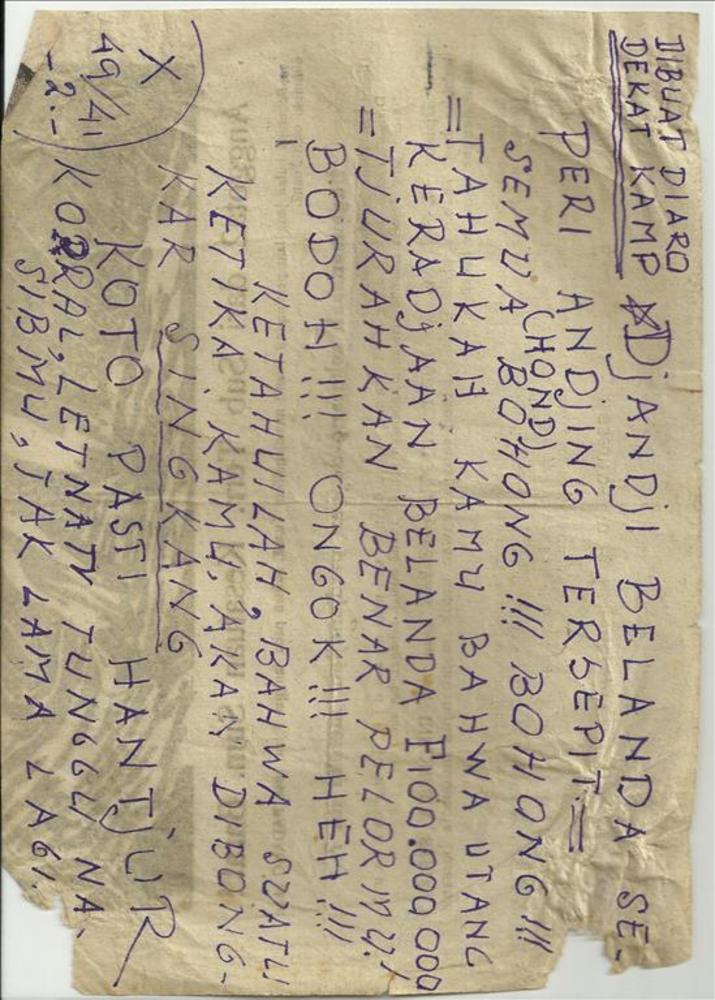 DIBUAT DIARO
DEKAT KAMP
DJANDJI BELANDA SE-
PERI ANDJING TERSEPIT =
(HOND)
SEMUA BOHONG!!! BOHONG!!!
= TAHUKAH KAMU BAHWA UTANG
KERADJAAN BELANDA F100.000.000
= TJURAHKAN BENAR PELORMU!
BODOH!!! ONGOK!!! HEH!!!
KETAHUILAH, BAHWA SUATU
KETIKA KAMU, AKAN DIBONG-
KAR SINGKANG
KOTO PASTI HANTJUR
KOPRAL, LETNAN TUNGGU NA-
SIBMU, TAK LAMA LAGI.
X
49/41
-2.-